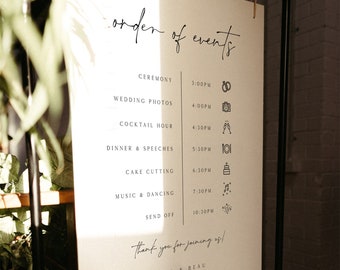 order of events
CEREMONY 3:00PM
WEDDING PHOTOS 4:00PM
COCKTAIL HOUR 4:30PM
DINNER & SPEECHES 5:30PM
CAKE CUTTING 6:30PM
MUSIC & DANCING 7:30PM
SEND OFF 10:30PM
thank you for joining us!
BEAU